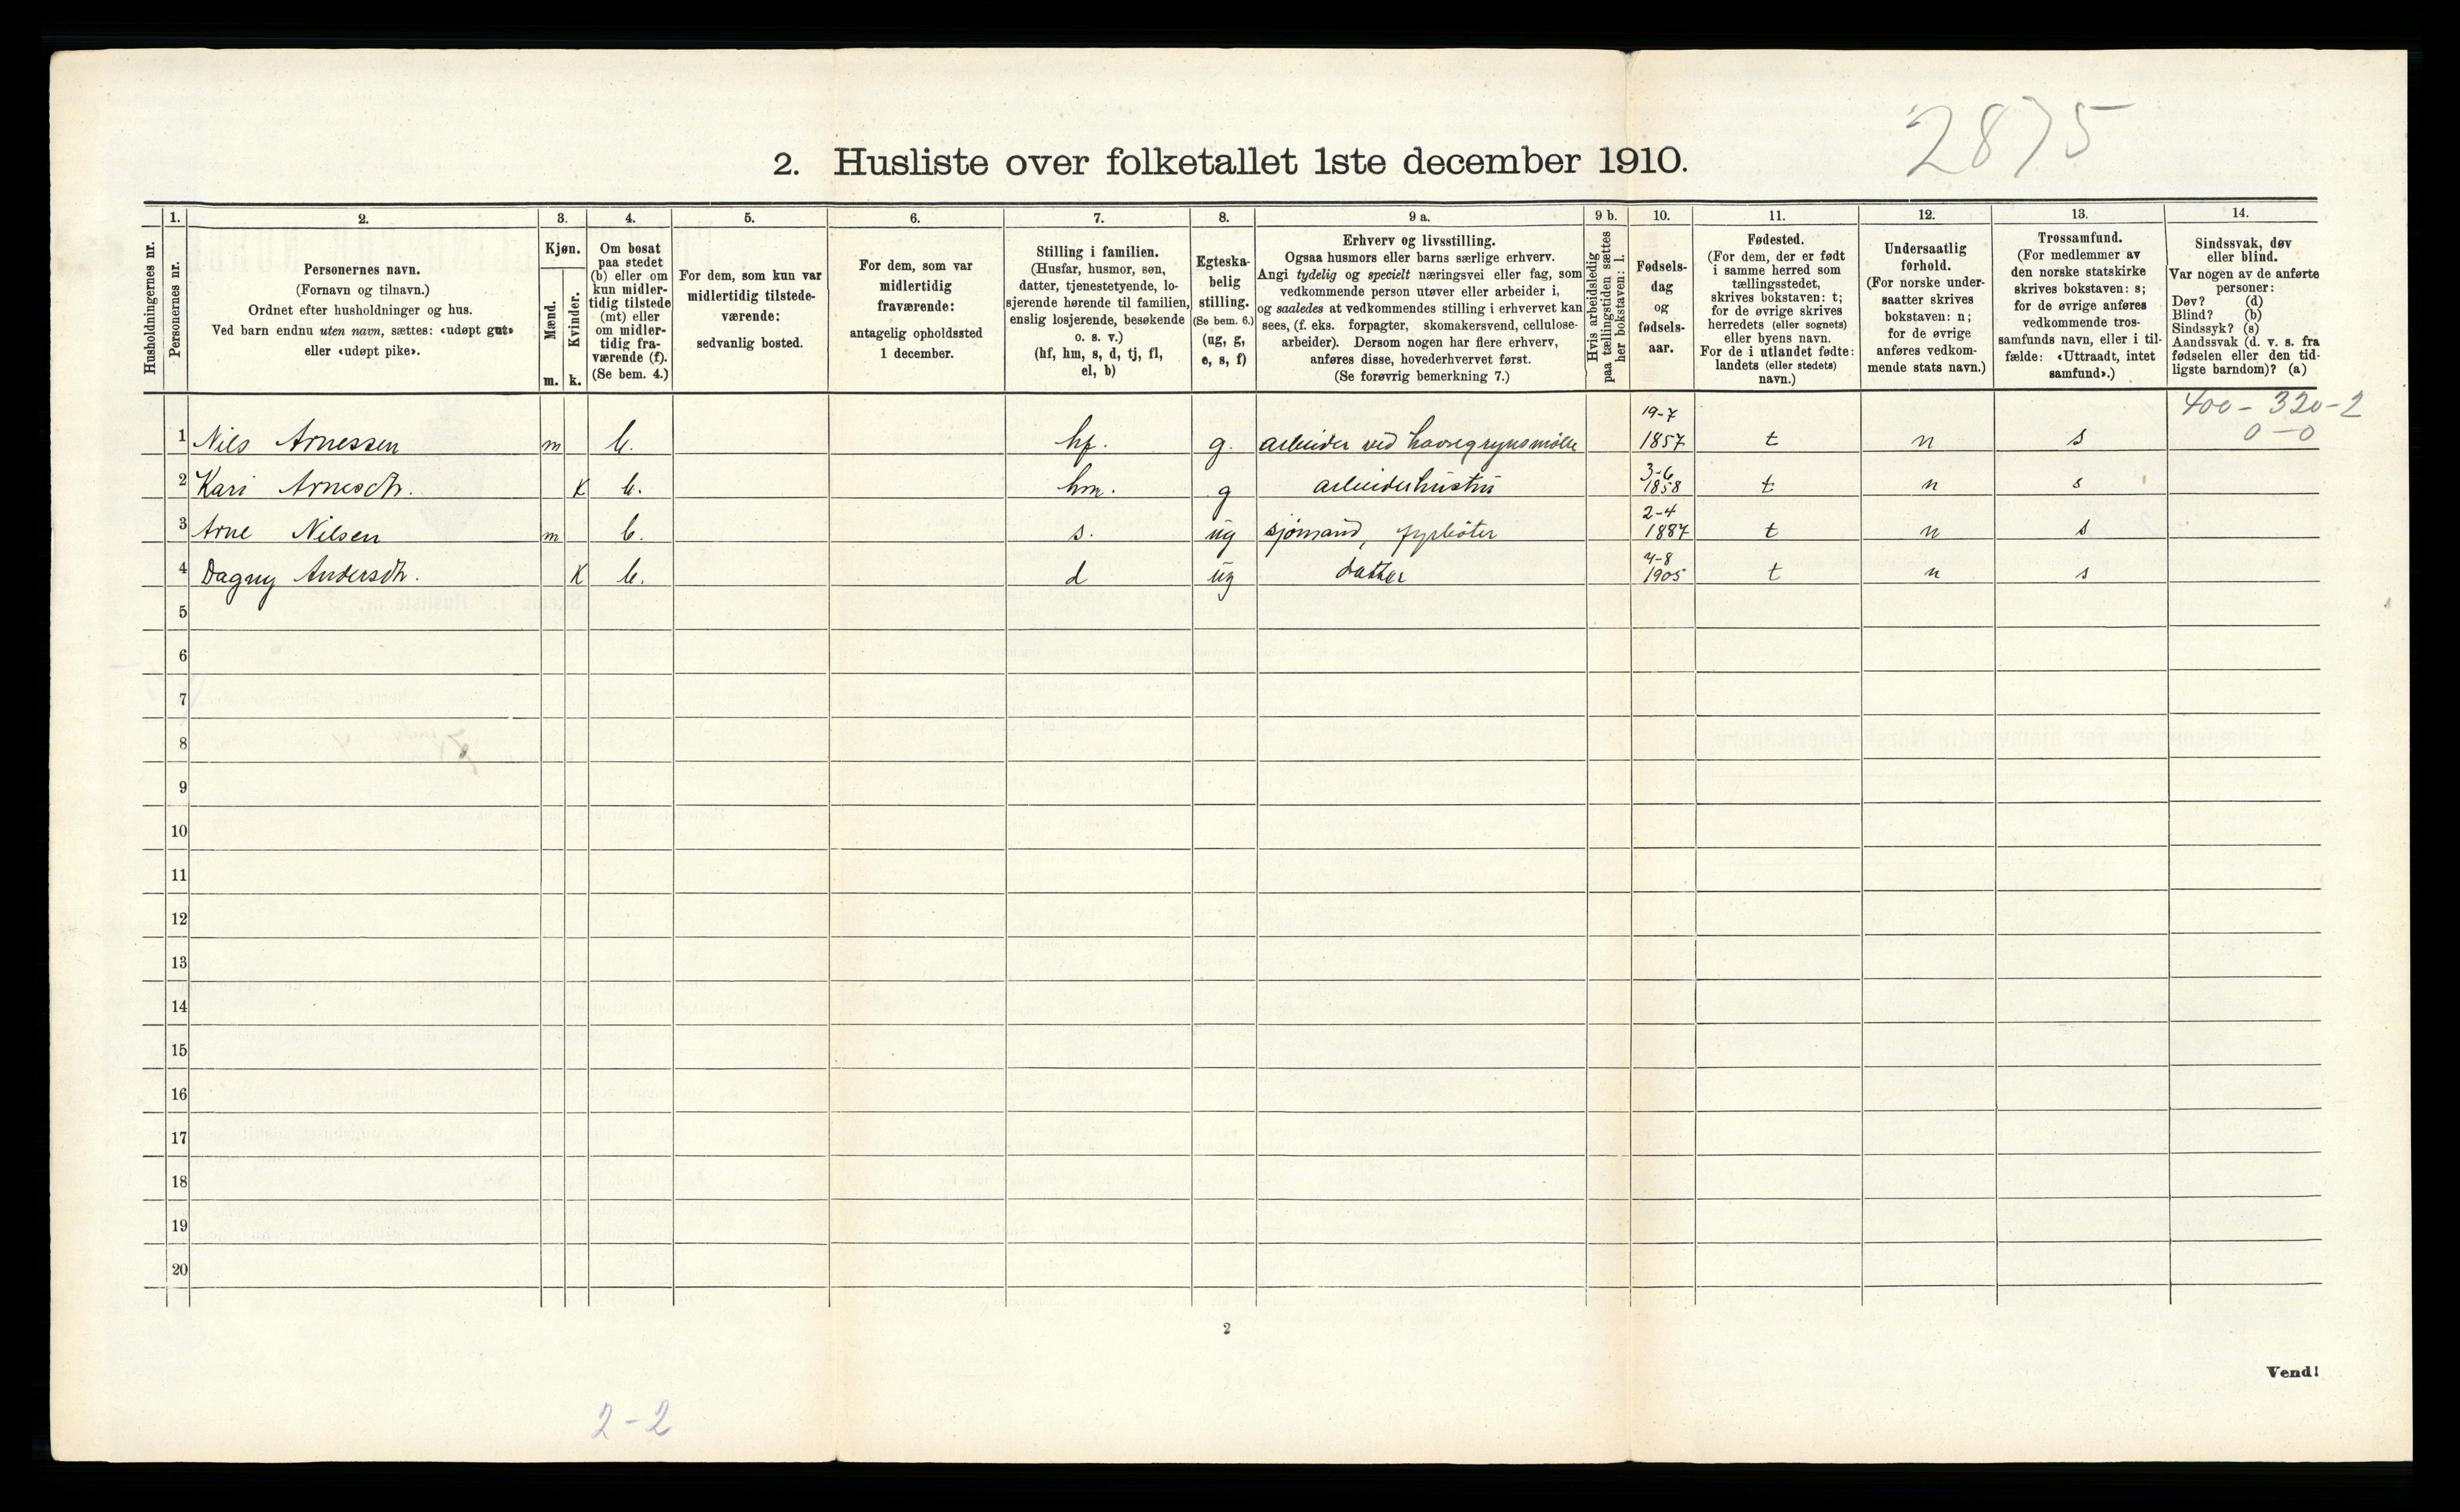 2875
2. Husliste over folketallet 1ste december 1910.
Husholdningernes nr.
1.
Personernes nr.
2.
Personernes navn.
(Fornavn og tilnavn.)
Ordnet efter husholdninger og hus.
Ved barn endnu uten navn, sættes: «udøpt gut»
eller «udøpt pike».
3.
Kjøn.
Mænd.
m.
Kvinder.
k.
4.
Om bosat
paa stedet
(b) eller om
kun midler-
tidig tilstede
(mt) eller
om midler-
tidig fra-
værende (f).
(Se bem. 4.)
5.
For dem, som kun var
midlertidig tilstede-
værende:
sedvanlig bosted.
6.
For dem, som var
midlertidig
fraværende:
antagelig opholdssted
1 december.
7.
Stilling i familien.
(Husfar, husmor, søn,
datter, tjenestetyende, lo-
sjerende hørende til familien,
enslig losjerende, besøkende
o. s. v.)
(hf, hm, s, d, tj, fl,
el, b)
8.
Egteska-
belig
stilling.
(Se bem. 6.)
(ug, g,
e, s, f)
9 a.
Erhverv og livsstilling.
Ogsaa husmors eller barns særlige erhverv.
Angi tydelig og specielt næringsvei eller fag, som
vedkommende person utøver eller arbeider i,
og saaledes at vedkommendes stilling i erhvervet kan
sees, (f. eks. forpagter, skomakersvend, cellulose-
arbeider). Dersom nogen har flere erhverv,
anføres disse, hovederhvervet først.
(Se forøvrig bemerkning 7.)
9 b.
Hvis arbeidsledig
paa tællingstiden sættes
her bokstaven: l.
10.
Fødsels-
dag
og
fødsels-
aar.
11.
Fødested.
(For dem, der er født
i samme herred som
tællingsstedet,
skrives bokstaven: t;
for de øvrige skrives
herredets (eller sognets)
eller byens navn.
For de i utlandet fødte:
landets (eller stedets)
navn.)
12.
Undersaatlig
forhold.
(For norske under-
saatter skrives
bokstaven: n;
for de øvrige
anføres vedkom-
mende stats navn.)
13.
Trossamfund.
(For medlemmer av
den norske statskirke
skrives bokstaven: s;
for de øvrige anføres
vedkommende tros-
samfunds navn, eller i til-
fælde: «Uttraadt, intet
samfund».)
14.
Sindssvak, døv
eller blind.
Var nogen av de anførte
personer:
Døv? (d)
Blind? (b)
Sindssyk? (s)
Aandssvak (d. v. s. fra
fødselen eller den tid-
ligste barndom)? (a)
400 - 320-2
0 - 0
1 Nils Arnessen m b. hf. g. arbeider ved havregrynsmølle 19-7 1857 t n s
2 Kari Arnesdtr. K b. hm. g arbeiderhustru 3-6 1858 t n s
3 Arne Nilsen m b. s. ug sjømand, fyrbøter 2-4 1887 t n s
4 Dagny Andersdtr. K b. d ug datter 4-8 1905 t n s
5
6
7
8
9
10
11
12
13
14
15
16
17
18
19
20
2
Vend!
2-2